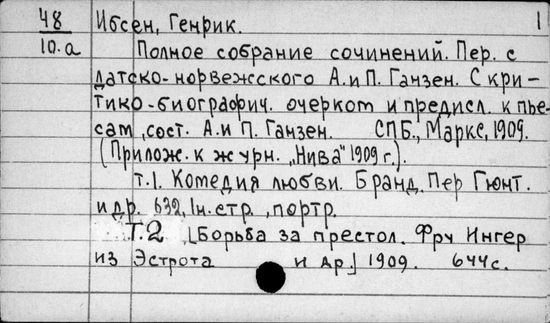 48 Ибсен, Генрик. 1
10.а Полное собрание сочинений. Пер. с
датско-норвежсского А. и П. Ганзен. С кри-
тико-биографич. очеркот и предисл. к пье-
сат, сост. А. и П. Ганзен. СПБ., Маркс, 1909.
(Прилож. к журн. „Нива" 1909 г.).
т.1. Котедия любви. Бранд. Пер Гюнт.
и др. 632, 1 н. стр., портр.
Т.2 [Борьба за престол. Фру Ингер
из Эстрота и др.] 1909. 644 с.